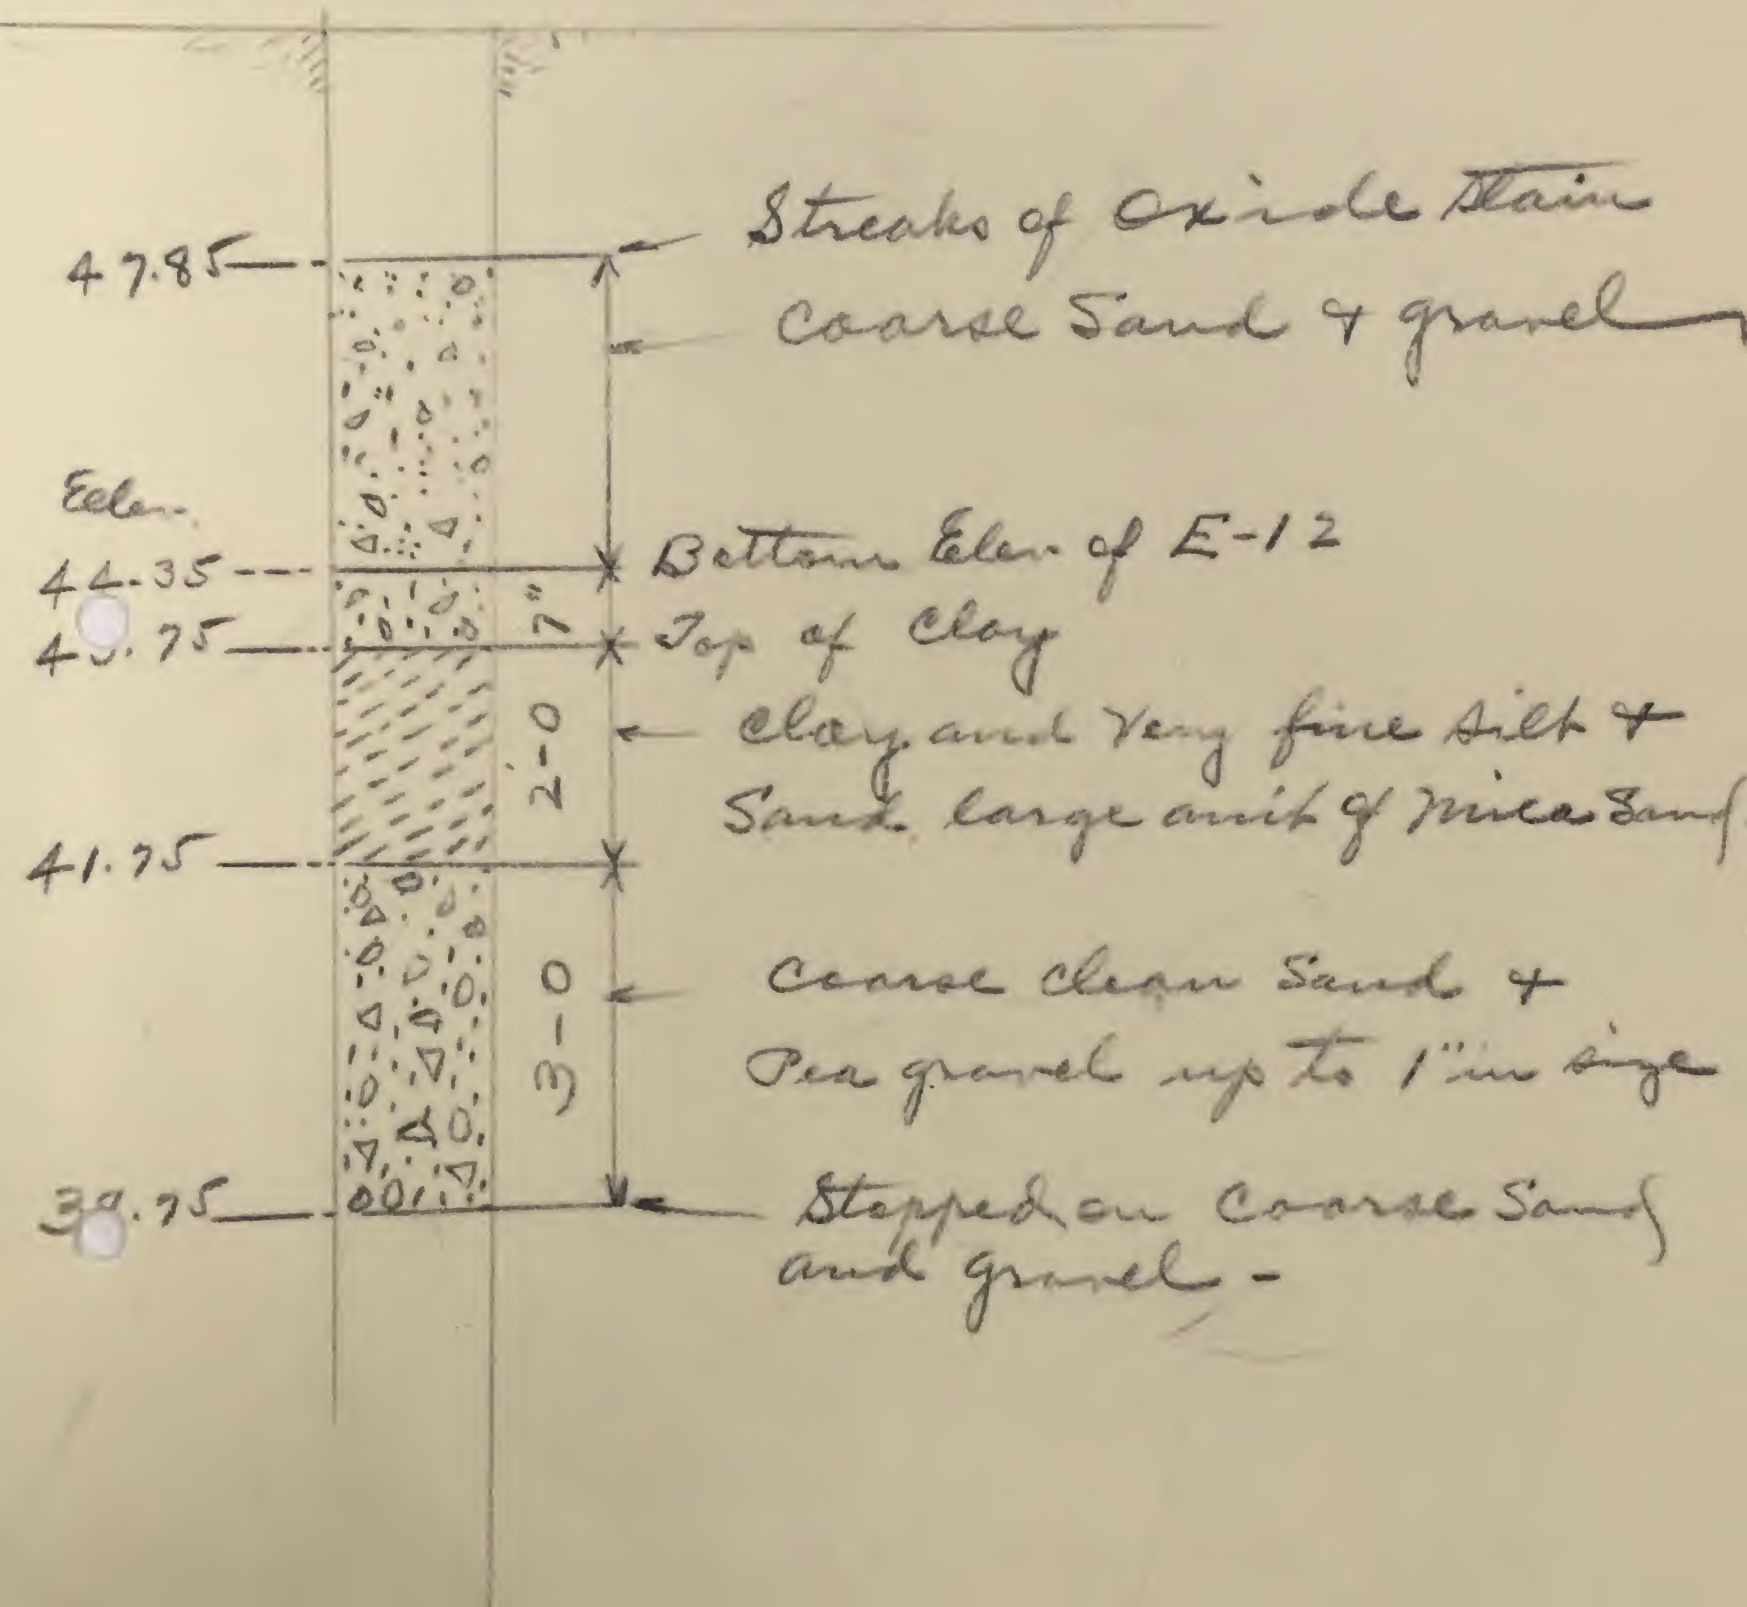 47.85
Streaks of Oxide Stain
Coarse Sand & gravel
Elev.
44.35
Bottom Elev of E-12
7"
75
Top of Clay
2-0
Clay and Very fine silt &
Sand large amt of Mica Sand
41.75
3-0
Coarse clean Sand &
Pea gravel up to 1" in size
.75
Stopped on Coarse Sand
and gravel -